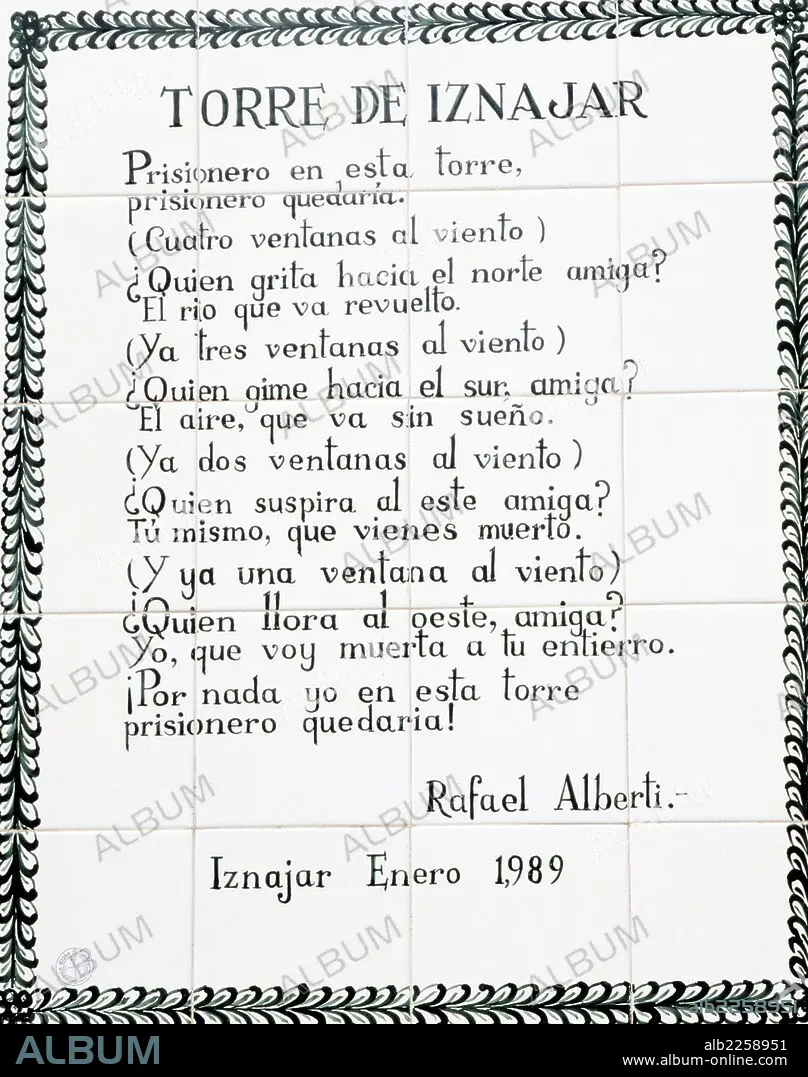 TORRE DE IZNAJAR
Prisionero en esta torre,
prisionero quedaría.
(Cuatro ventanas al viento)
¿Quien grita hacia el norte amiga?
El rio que va revuelto.
(Ya tres ventanas al viento)
¿Quien gime hacia el sur, amiga?
El aire, que va sin sueño.
(Ya dos ventanas al viento)
¿Quien suspira al este amiga?
Tú mismo, que vienes muerto.
(Y ya una ventana al viento)
¿Quien llora al oeste, amiga?
Yo, que voy muerta a tu entierro.
¡Por nada yo en esta torre
prisionero quedaria!
Rafael Alberti.-
Iznajar Enero 1,989
ALBUM
alb2258951
www.album-online.com